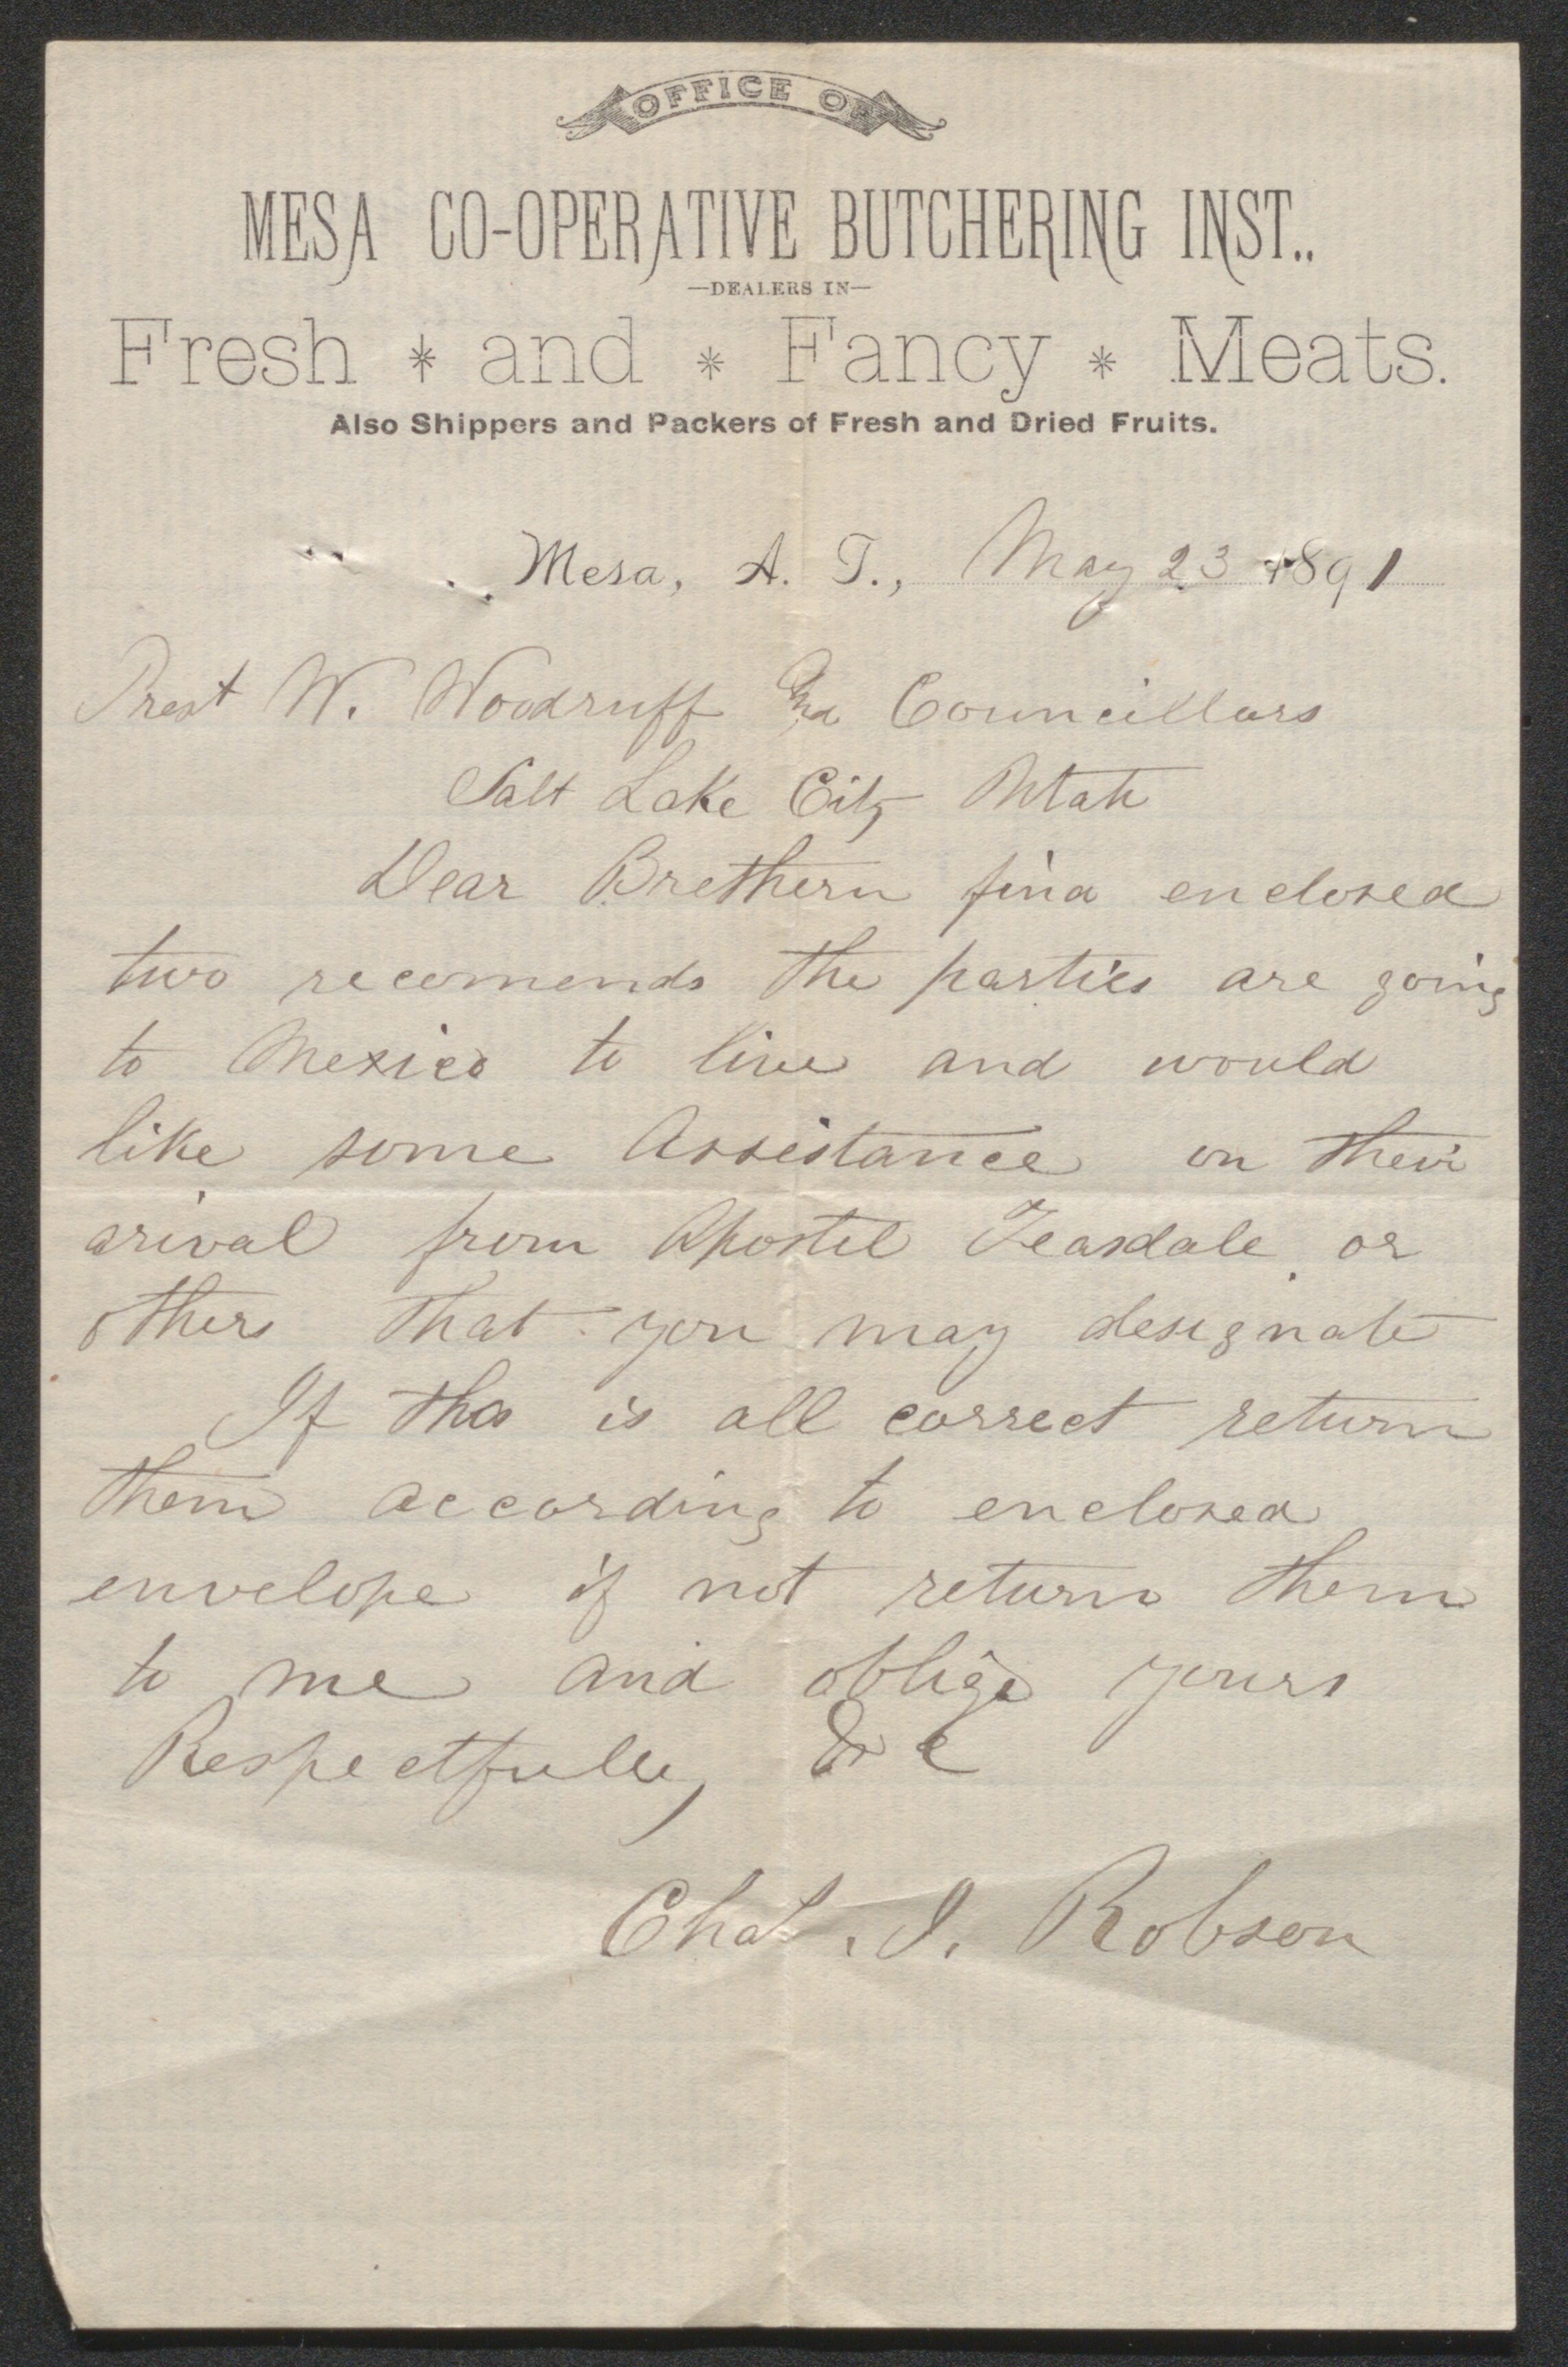 OFFICE OF
MESA CO-OPERATIVE BUTCHERING INST..
—DEALERS IN—
Fresh * and * Fancy * Meats.
Also Shippers and Packers of Fresh and Dried Fruits.
Mesa, A. T., May 23 1891
Prest W. Woodruff And Councillors
Salt Lake City Utah
Dear Brethern find enclosed
two recomends the parties are going
to Mexico to live and would
like some Assistance on their
arival from Apostel Teasdale or
others that you may designate
If this is all correct return
them according to enclosed
envelope if not return them
to me and oblige yours
Respectfully &c
Chas. I. Robson